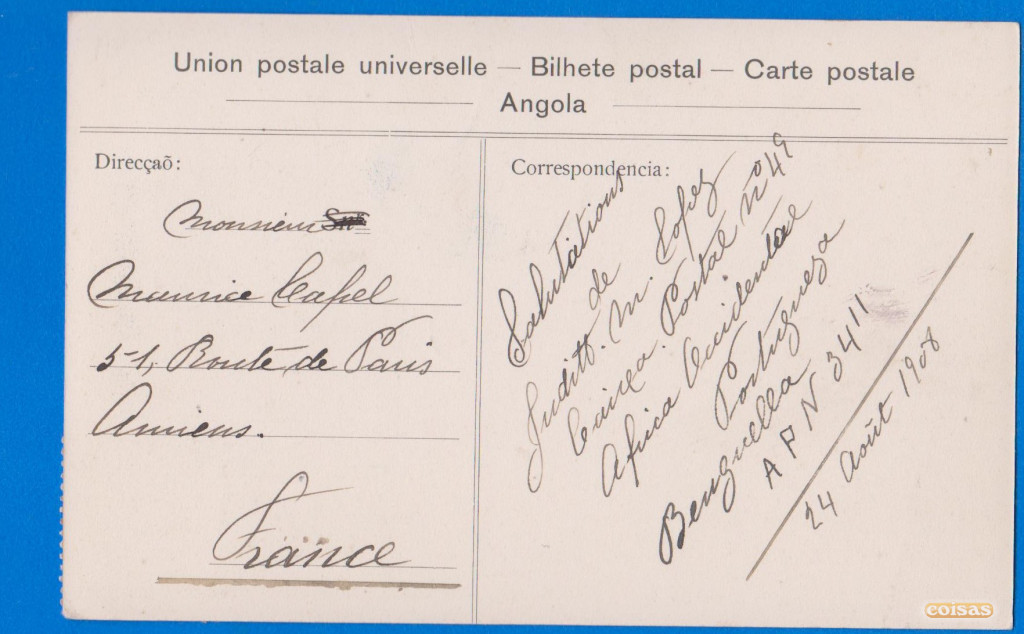 Union postale universelle — Bilhete postal — Carte postale
Angola
Direcçaõ:
Monsieur
Maurice Capel
51, Route de Paris
Amiens.
France
Correspondencia:
Salutations
de
Judith. M. Lopez
Caixa. Postal Nº 49
Africa Occidental
Portugueza
Benguella
A P N 3411
24 Août 1908
coisas